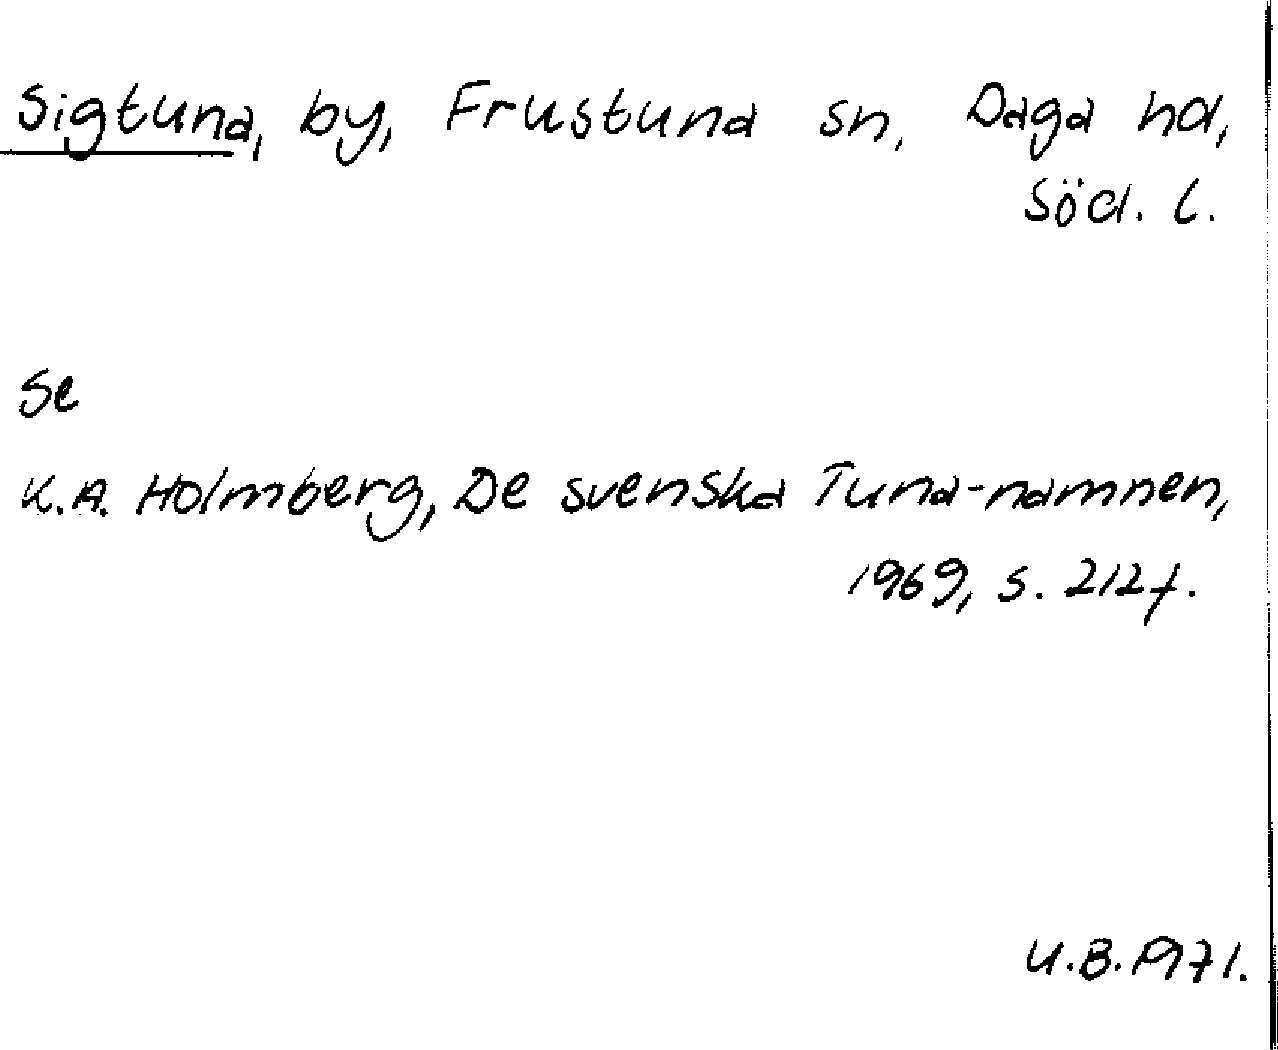 Sigtuna, by, Frustuna sn, Daga hd,
Söd. l.
Se
K.A. Holmberg, De svenska Tuna-namnen,
1969, s. 212f.
U.B. 1971.